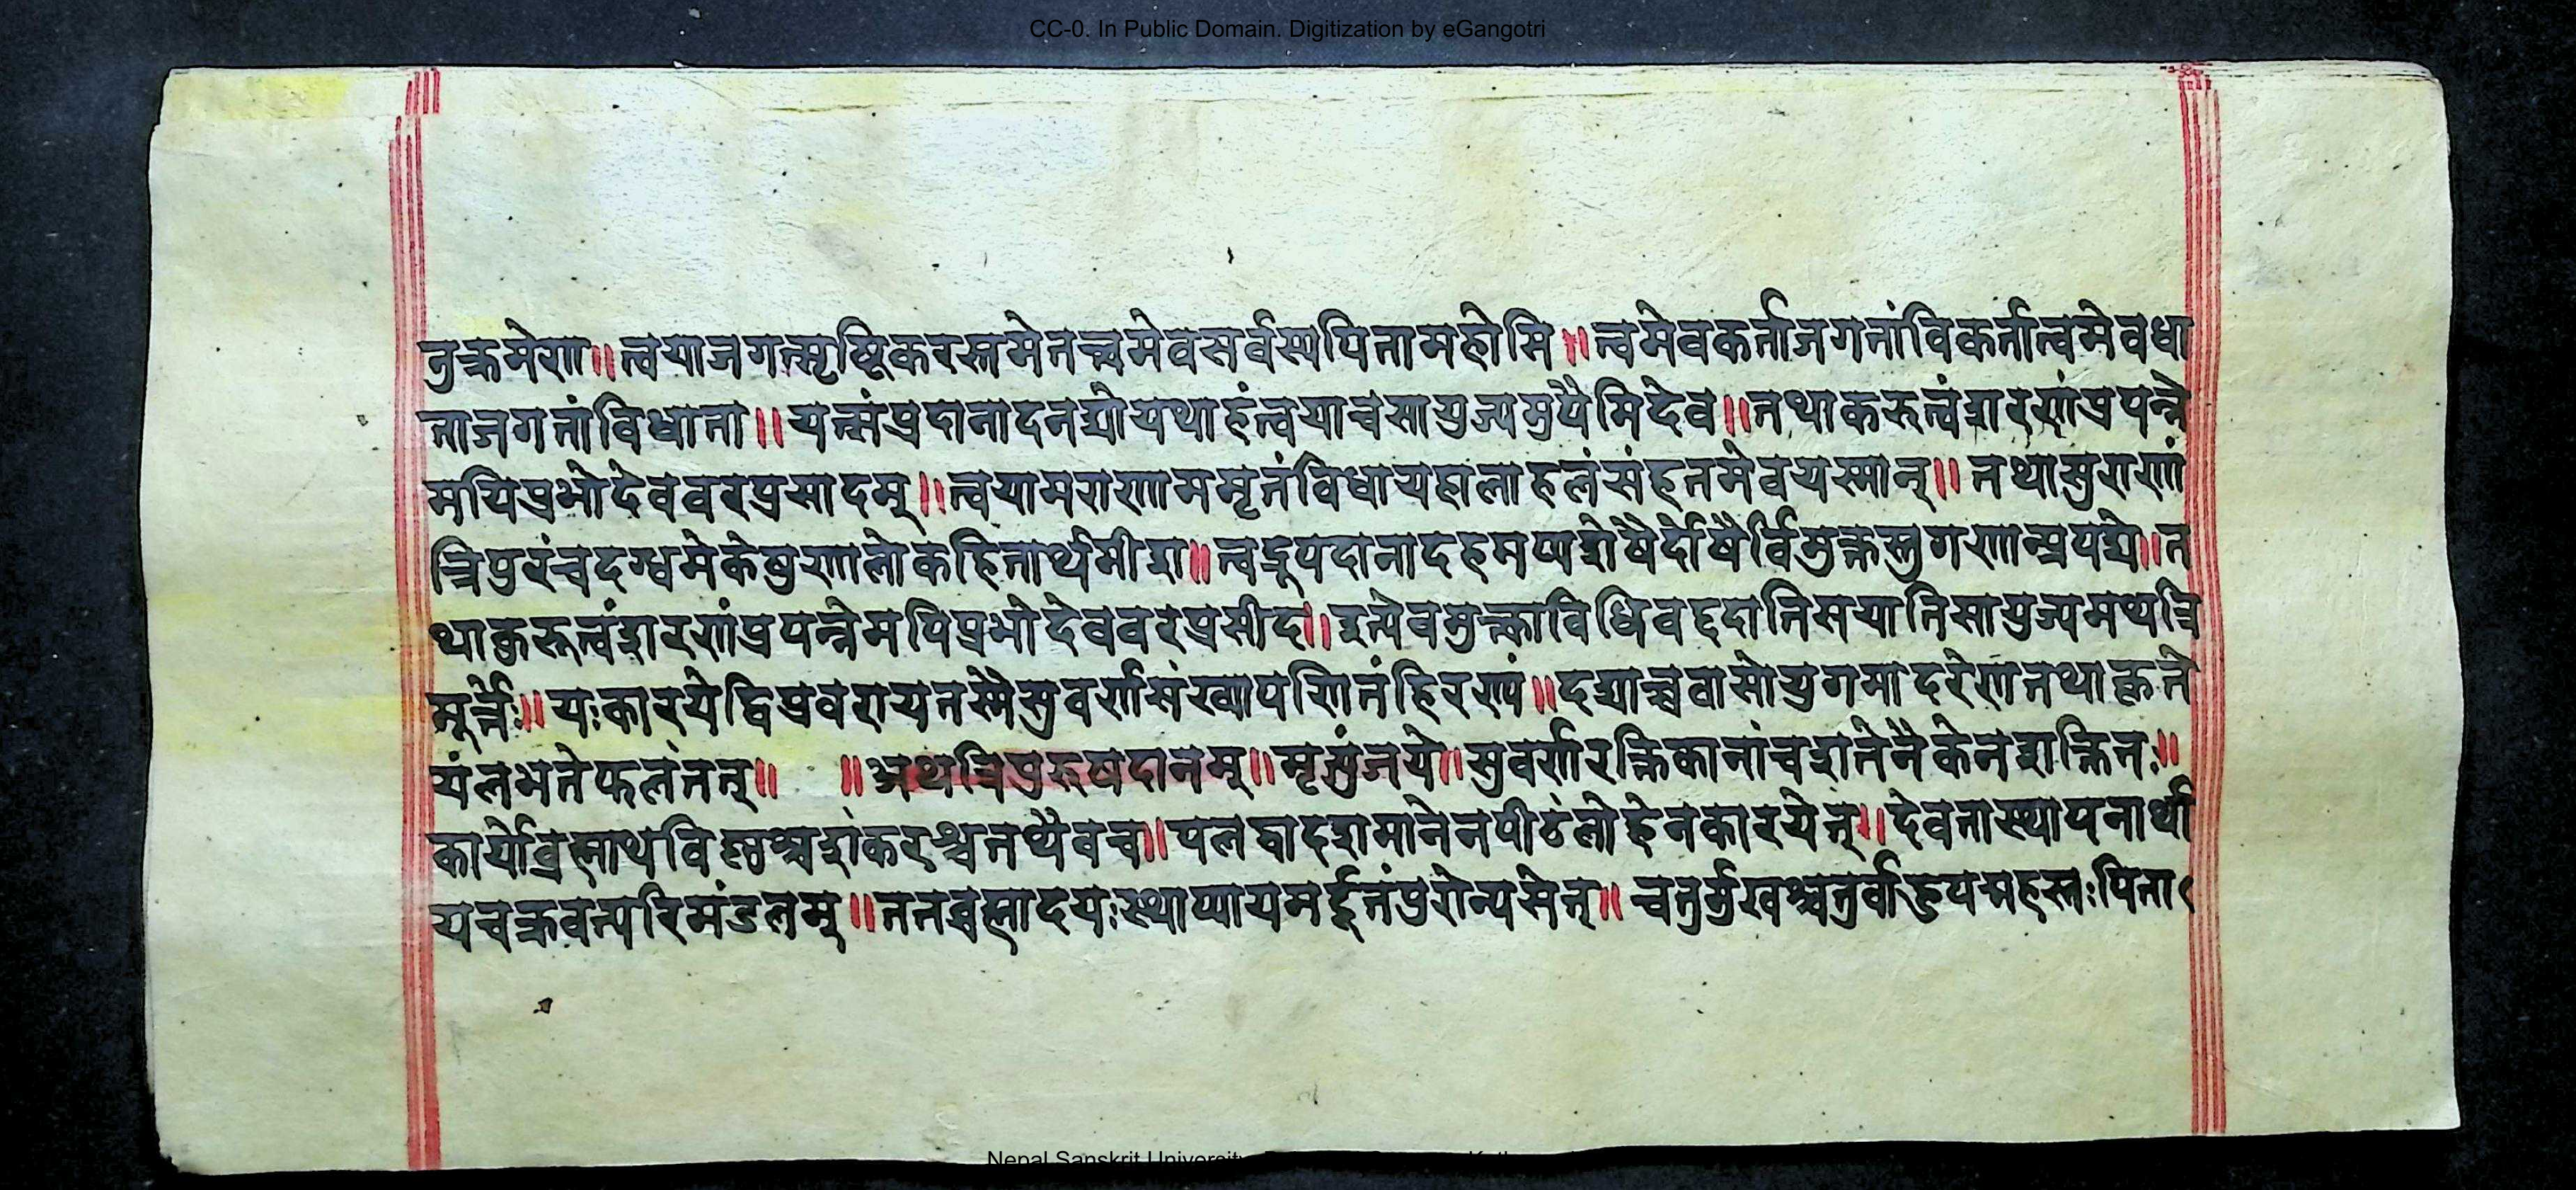 CC-0. In Public Domain. Digitization by eGangotri
नुक्रमेण॥त्वयाजगत्सृष्टिकरस्त्वमेतत्त्वमेवसर्वस्यपितामहोसि॥त्वमेवकर्ताजगतांविकर्तात्वमेवधा
ताजगतांविधाता॥यत्संप्रदानादनद्यौयथाहंत्वयाचसायुज्यमुपैमिदेव॥तथाकरुत्वंशरणंप्रपन्ने
मयिप्रभोदेववरप्रसादम्॥त्वयामराणाममृतंविधायहालाहलंसंहृतमेवयस्मात्॥तथासुराणां
त्रिपुरंचदग्धमेकेषुणालोकहितार्थमीश॥त्वद्रूपदानादहमप्यशेषैर्दोषैर्विमुक्तस्तुगणान्प्रपद्ये॥त
थाकुरुत्वंशरणंप्रपन्नेमयिप्रभोदेववरप्रसीद॥इत्येवमुक्त्वाविधिवद्ददातिसयातिसायुज्यमथत्रि
मूर्त्तेः॥यःकारयेद्विप्रवरायतस्मैसुवर्णसंख्यापरिनंहिरण्यं॥दद्याच्चवासोयुगमादरेणतथाक्तते
यंलभतेफलंतत्॥ ॥अथत्रिपुरुषदानम्॥मृत्युंजये॥सुवर्णरक्तिकानांचशतेनैकेनशक्तितः॥
कार्योब्रह्माथविष्णुश्चशंकरश्चतथैवच॥पलद्वादशमानेनपीठंलोहेनकारयेत्॥देवतास्थापनार्था
यचक्रवत्परिमंडलम्॥ततब्रह्मादयःस्थाप्यायमर्द्दूतंपुरोन्यसेत्॥चतुर्मुखश्चतुर्वाहुपद्महस्तःपिता
Nepal Sanskrit University